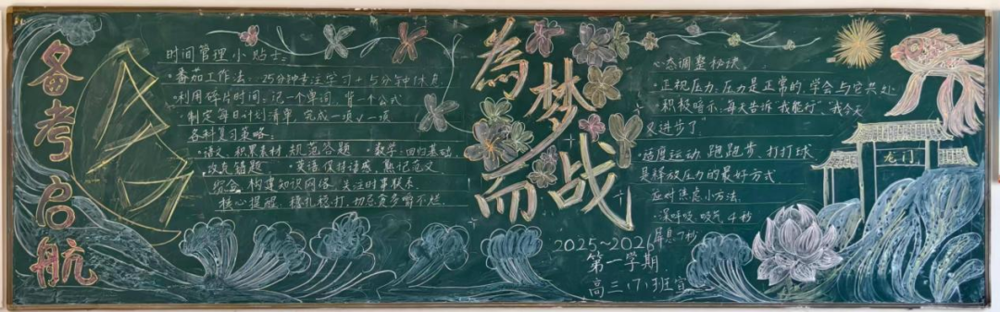 备考启航
时间管理小贴士:
·番茄工作法:25分钟专注学习+5分钟休息
·利用碎片时间:记一个单词,背一个公式
·制定每日计划清单,完成一项√一项
各科复习策略
·语文:积累素材 规范答题 ·数学:回归基础
攻克错题 ·英语:保持语感 熟记范文
综合:构建知识网络 关注时事联系
核心提醒:稳扎稳打,切忌贪多嚼不烂
為梦而战
2025~2026
第一学期
高三(7)班宣
心态调整秘诀
·正视压力,压力是正常的,学会与它共处
·积极暗示,每天告诉"我能行""我今天
又进步了"
·适度运动,跑跑步,打打球
是释放压力的最好方式
应对焦虑小方法
·深呼吸:吸气4秒
屏息7秒
龙门